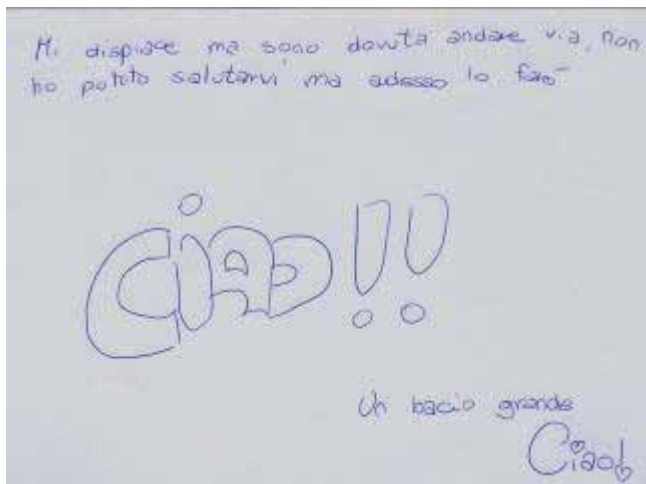 Mi dispiace ma sono dovuta andare via, non
ho potuto salutarvi ma adesso lo farò
CIAO!!
Un bacio grande
Ciao!